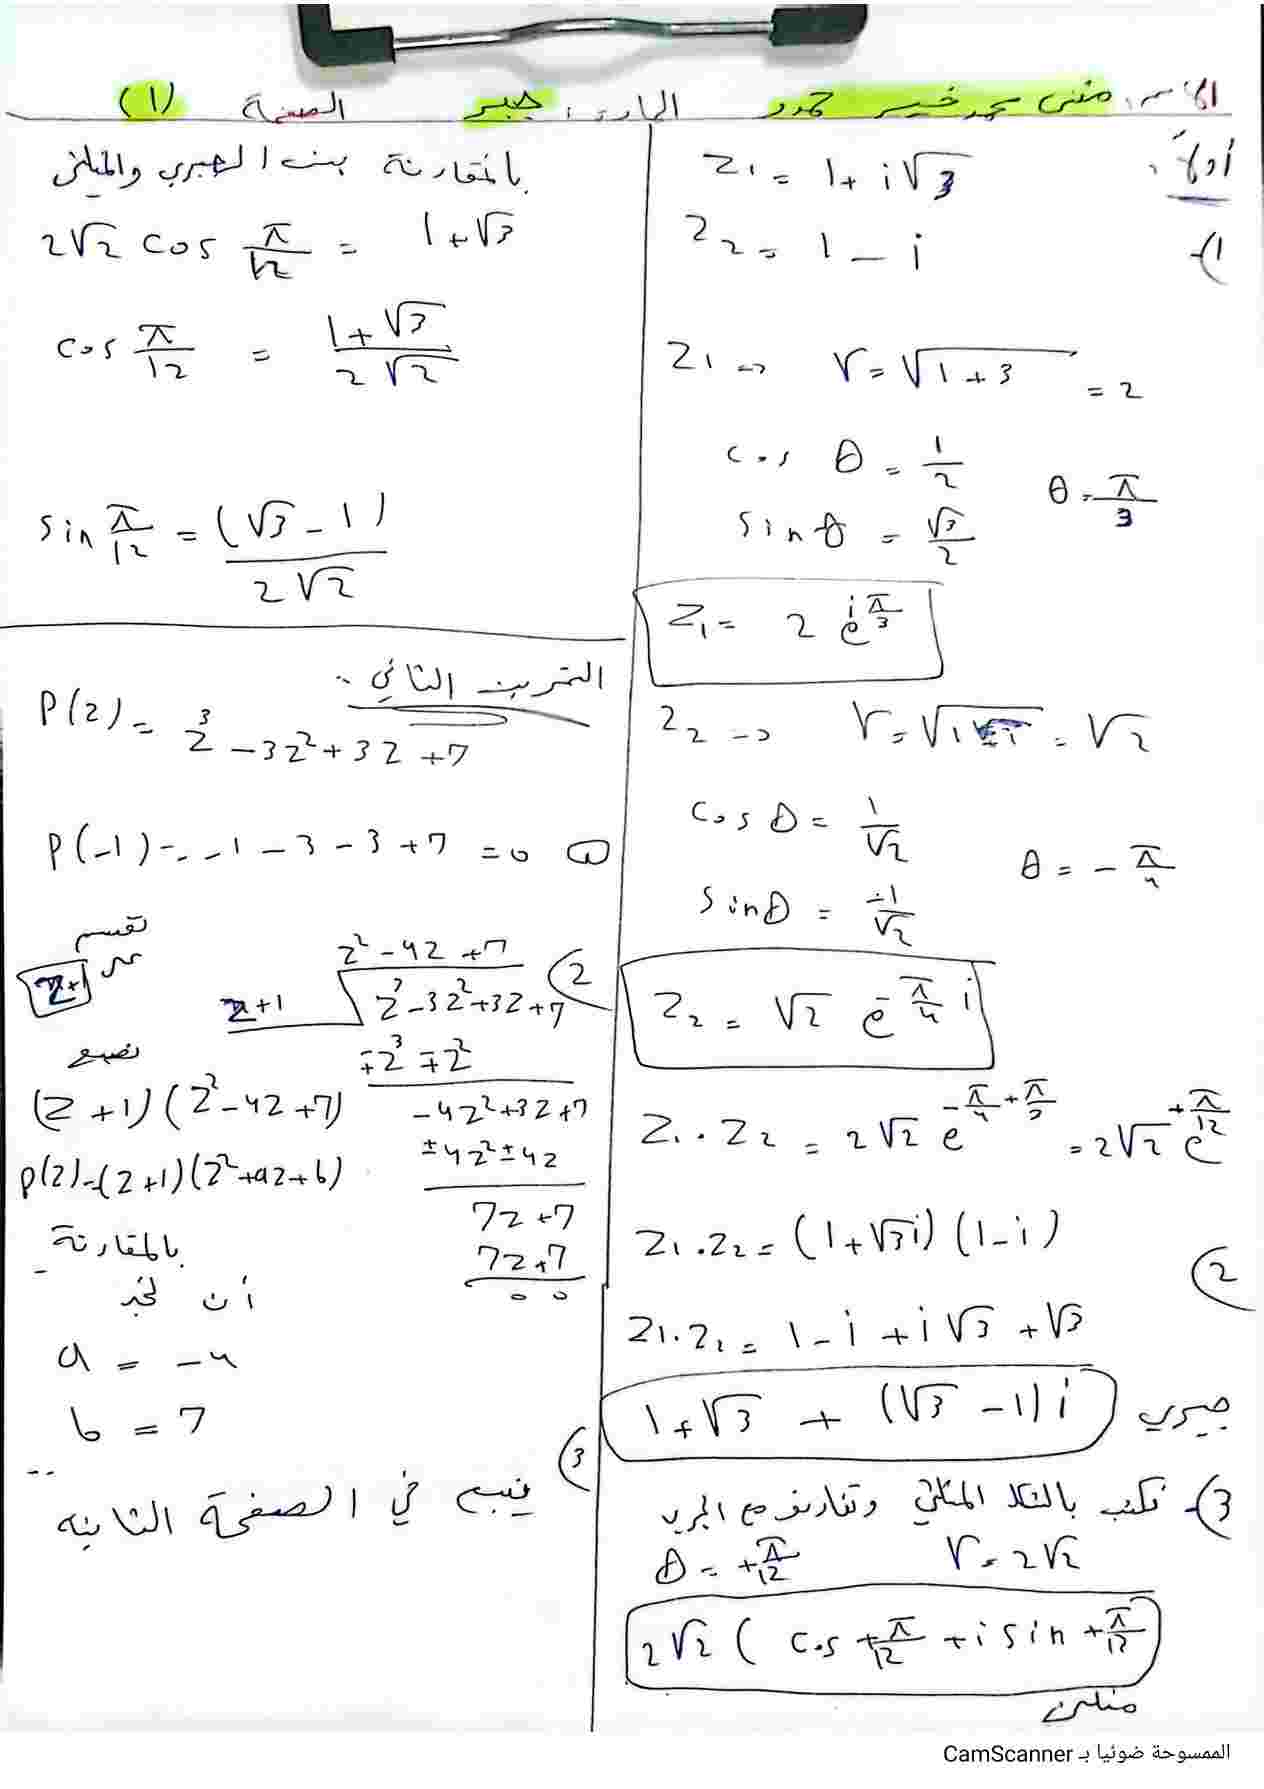 الاسم: مثنى محمد خير حمود المادة: جبر الصفحة (1)
أولاً:
Z₁ = 1 + i√3
1-
Z₂ = 1 - i
Z₁ => r = √(1+3) = 2
cos θ = 1/2
θ = π/3
sin θ = √3/2
Z₁ = 2 e^(i π/3)
Z₂ -> r = √(1+1) = √2
cos θ = 1/√2
θ = -π/4
sin θ = -1/√2
Z₂ = √2 e^(-π/4 i)
Z₁ . Z₂ = 2√2 e^(-π/4 + π/3) = 2√2 e^(+π/12)
2
Z₁.Z₂ = (1+√3i) (1-i)
Z₁.Z₂ = 1 - i + i√3 + √3
1+√3 + (√3 - 1) i جبري
3- نكتب بالشكل المثلثي ونقارنه مع الجبري
θ = +π/12 r = 2√2
2√2 ( cos +π/12 + i sin +π/12
مثلثي
بالمقارنة بين الجبري والمثلثي
2√2 cos π/12 = 1+√3
cos π/12 = (1+√3)/(2√2)
sin π/12 = (√3 - 1)/(2√2)
التمرين الثاني:
P(z) = z³ - 3z² + 3z + 7
P(-1) = -1 - 3 - 3 + 7 = 0 1
2
نقسم
على
z+1
z² - 4z + 7
z+1 z³ - 3z² + 3z + 7
∓z³ ∓z²
-4z² + 3z + 7
±4z² ± 4z
7z + 7
7z + 7
0 0
نضع
(z + 1) (z² - 4z + 7)
P(z) = (z+1)(z² + az + b)
بالمقارنة
أن نجد
a = -4
b = 7
3
يتبع في الصفحة الثانية
الممسوحة ضوئيا بـ CamScanner